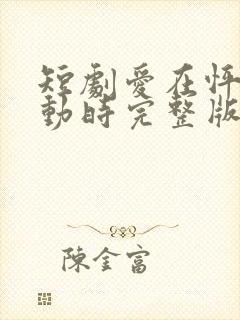 短劇愛在怦
動時完整版
陳金富